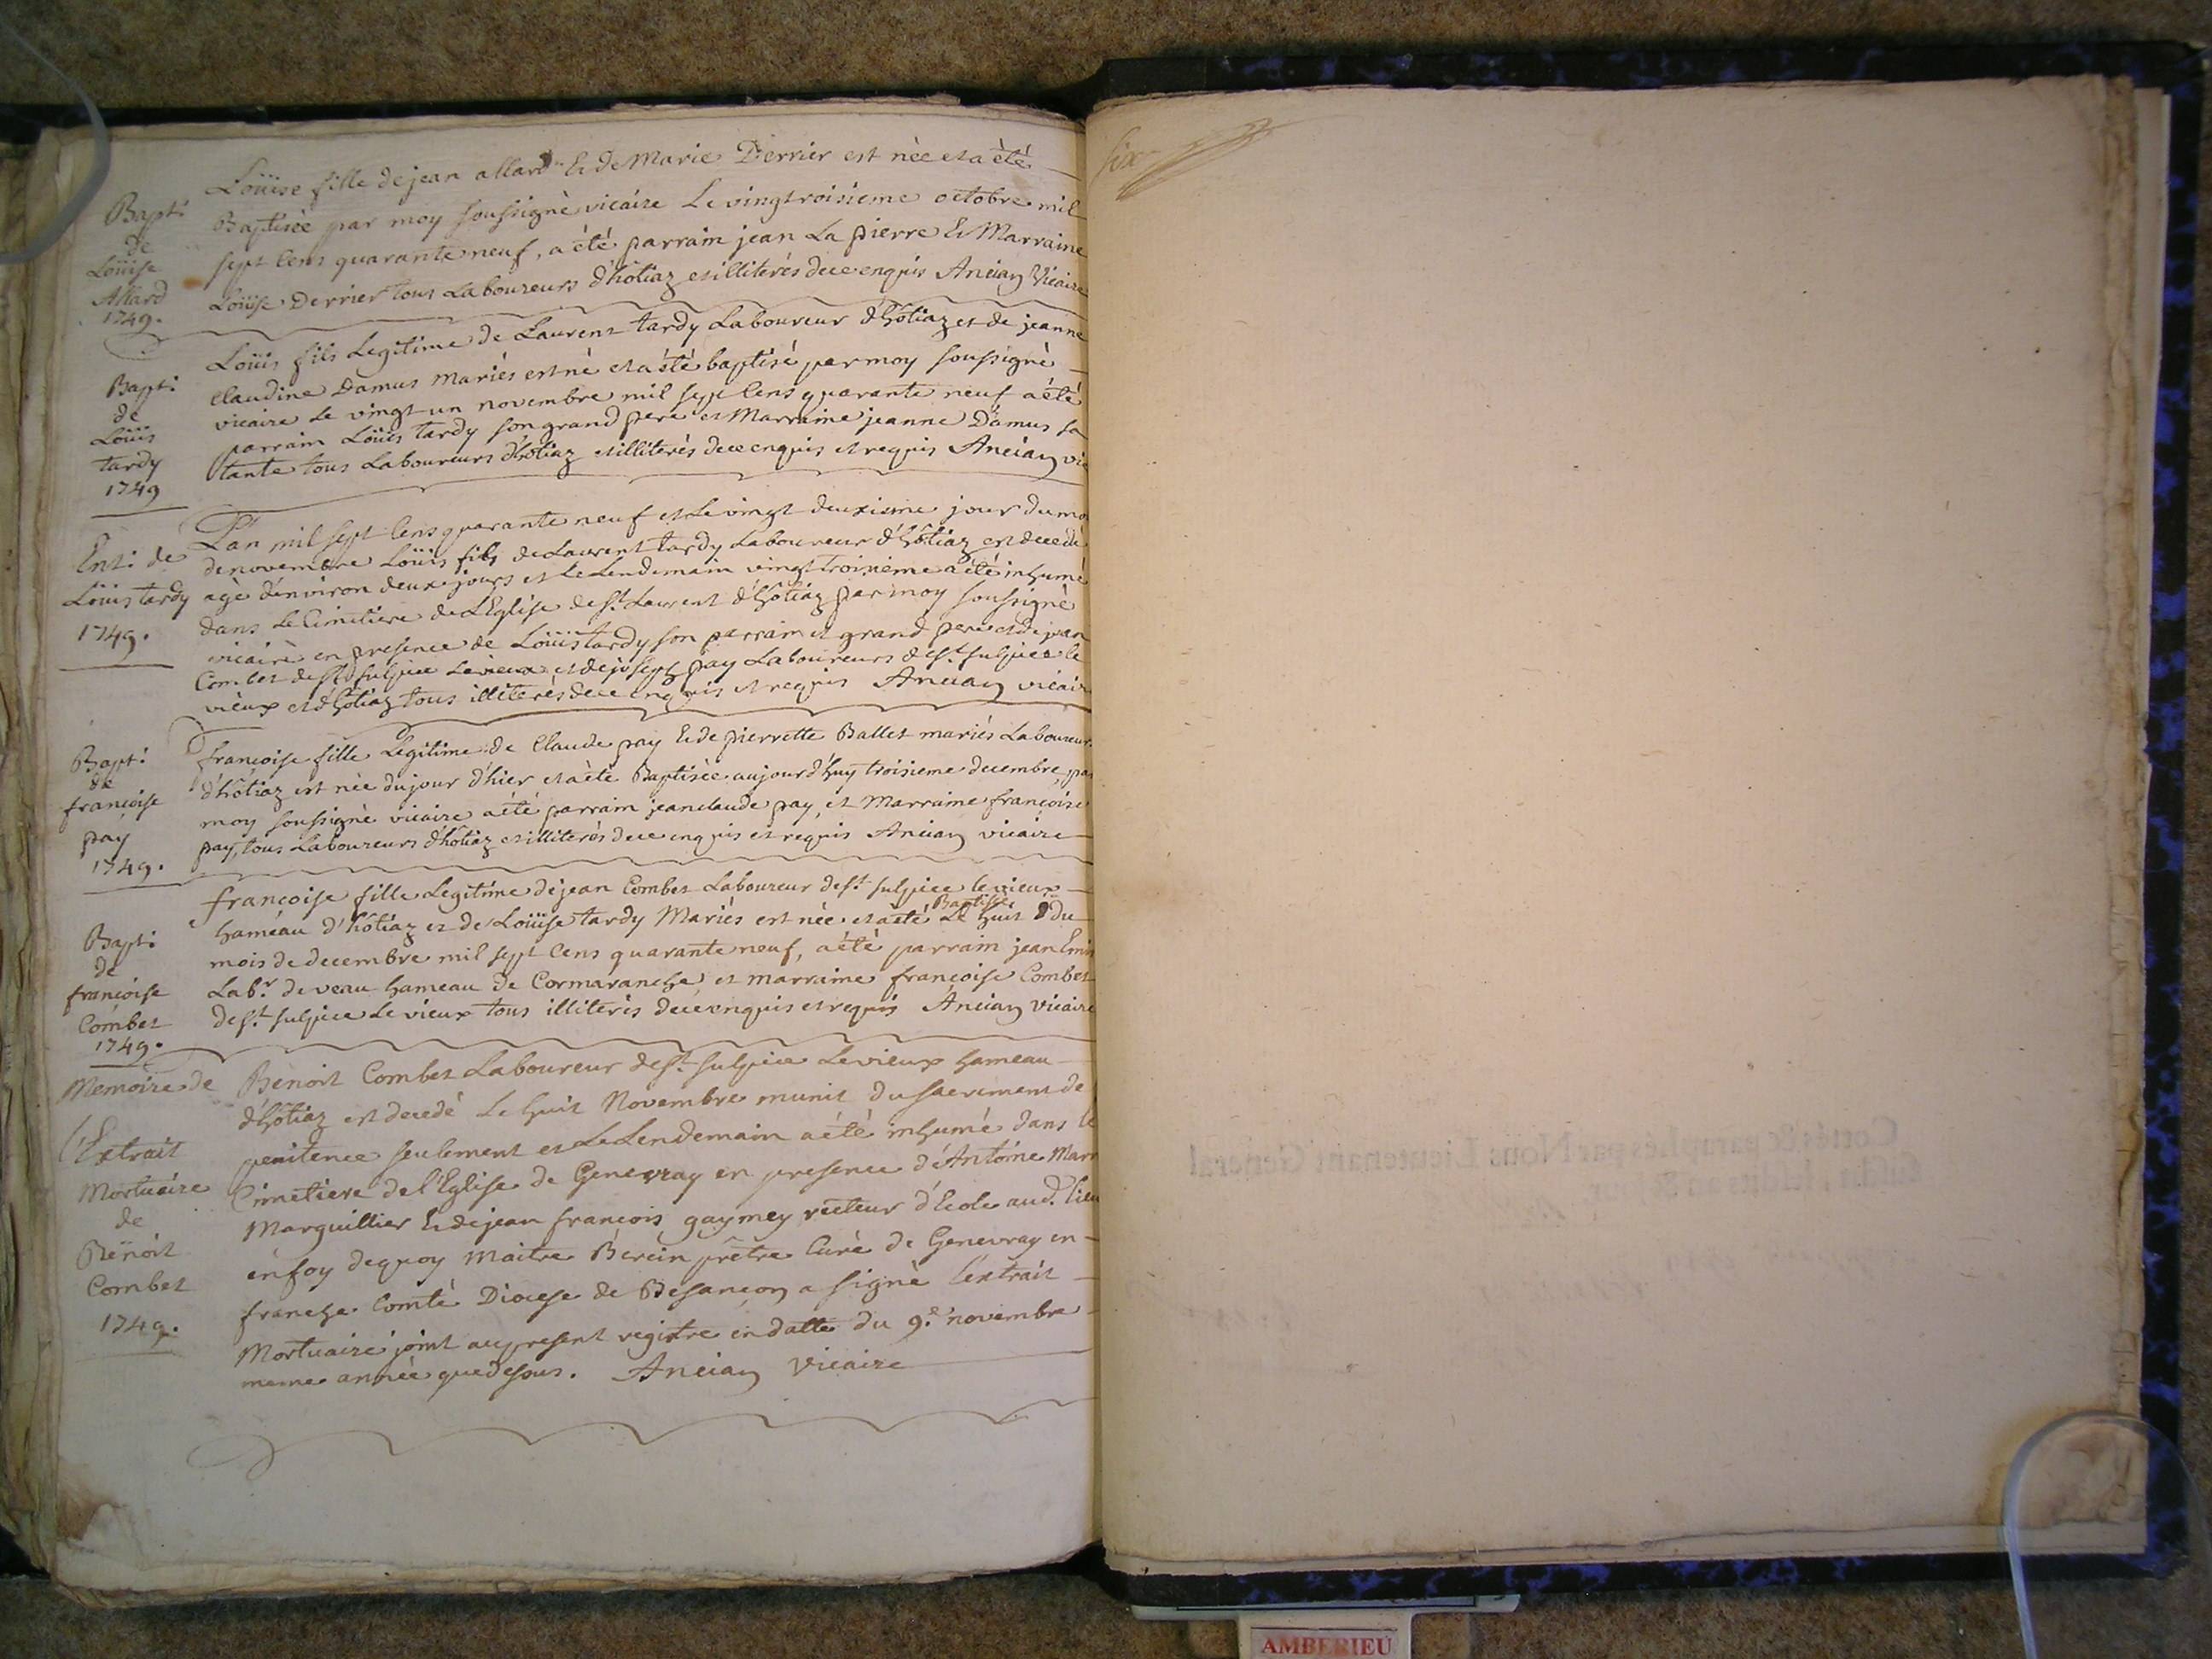 Bapt:
de
Loüise
Allard
1749.
Loüise fille de jean allard Et de Marie Derrier est nèe et a ètè
Baptisèe par moy soussignè vicaire Le vingtroisieme octobre mil
sept Cens quarante neuf, a ètè parrain jean La pierre Et Marraine
Loüise Derrier tous Laboureurs d'hôtiaz et illiterès de ce enquis Ancian Vicaire
Bapt:
de
Loüis
tardy
1749
Loüis fils Legitime de Laurent tardy Laboureur d'hôtiaz et de jeanne
Claudine Damus Mariès est nè et a ètè baptisè par moy soussignè
vicaire Le vingt un novembre mil sept Cens quarante neuf a ètè
parrain Loüis tardy son grand pere et Marraine jeanne Damus sa
tante tous Laboureurs d'hôtiaz et illiterès de ce enquis et requis Ancian vic
Ent: de
Loüis tardy
1749.
L'an mil sept Cens quarante neuf et Le vingt deuxieme jour du mo
de novembre Loüis fils de Laurent tardy Laboureur d'hôtiaz est decedè
agè d'environ deux jours et Le Lendemain vingt troisieme a ètè inhumè
dans Le Cimetiere de L'Eglise de St. Laurent d'hôtiaz par moy soussignè
vicaire en presence de Loüis tardy son parrain et grand pere et de jean
Combet de St. sulpice Le vieux et de joseph pay Laboureurs de St. sulpice le
vieux et d'hôtiaz tous illiterès de ce enquis et requis Ancian vicair
Bapt:
de
françoise
pay
1749.
françoise fille Legitime de Claude pay Et de pierrette Ballet mariès Laboureurs
d'hôtiaz est nèe du jour d'hier et a ètè Baptisèe aujourd'huy troisieme decembre par
moy soussignè vicaire a ètè parrain jean claude pay, et Marraine françoise
pay, tous Laboureurs d'hôtiaz et illiterès de ce enquis et requis Ancian vicaire
Bapt:
de
françoise
Combet
1749.
françoise fille Legitime de jean Combet Laboureur de St. sulpice le vieux
Baptisèe
hamèau d'hôtiaz et de Loüise tardy Mariès est nèe et a ètè Le huit du
mois de decembre mil sept Cens quarante neuf, a ètè parrain jean
Labr. de veau hameau de Cormaranche et marraine françoise Combet
de St. sulpice Le vieux tous illiterès de ce enquis et requis Ancian Vicaire
Memoire de
l'Extrait
Mortuaire
de
Benoit
Combet
1749.
Benoit Combet Laboureur de St. sulpice Le vieux hameau
d'hôtiaz est decedè Le huit Novembre munit du sacrement de
penitence seulement et Le Lendemain a ètè inhumè dans le
Cimetiere de l'Eglise de Genevray en presence d'Antoine Marr
Marguillier Et de jean françois gaymey recteur d'Ecole aud. lieu
en foy de quoy Maitre Berein prêtre Curè de Genevray en
franche Comtè Diocese de Besançon a signè l'extrait
Mortuaire joint au present registre en datte du 9e. novembre
meme annèe que dessus. Ancian Vicaire
six
Cottés & paraphés par Nous Lieutenant General
AMBERIEU